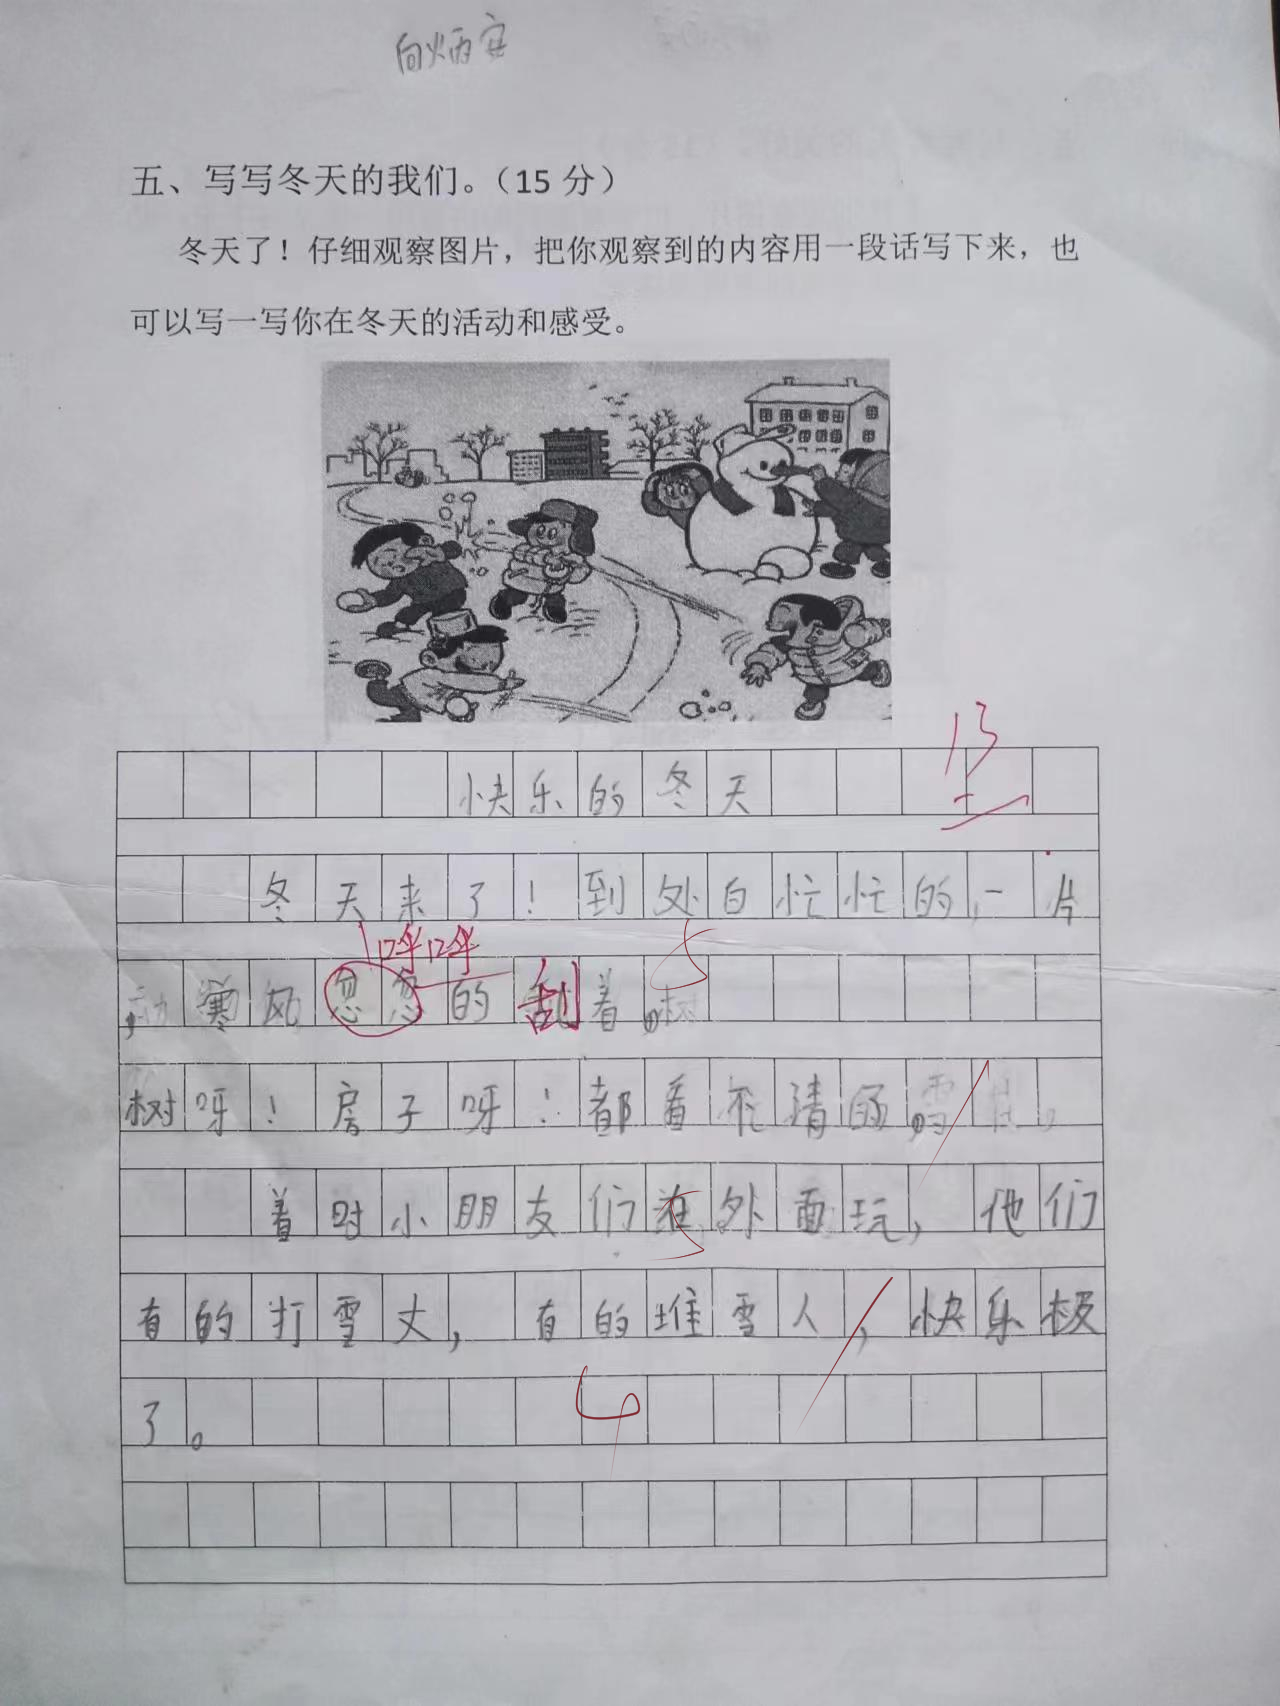 向炳安
五、写写冬天的我们。（15 分）
冬天了！仔细观察图片，把你观察到的内容用一段话写下来，也
可以写一写你在冬天的活动和感受。
13
快乐的冬天
冬天来了！到处白忙忙的，一片
呼呼
，寒风忽忽的刮着，树
5
树呀！房子呀！都看不清
着时小朋友们在外面玩，他们
5
有的打雪丈，有的堆雪人，快乐极
了。